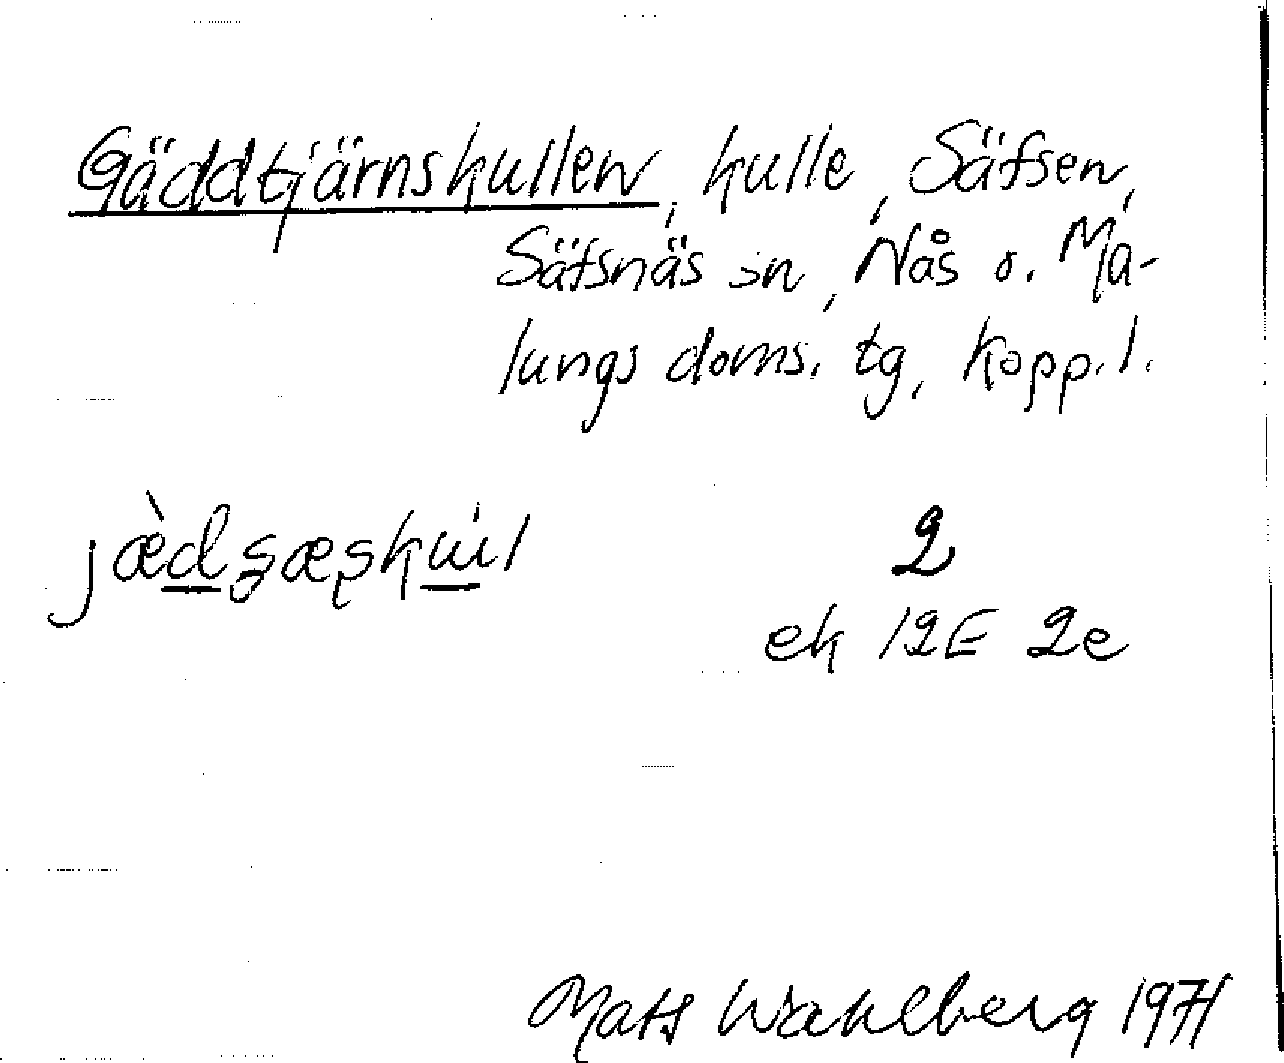 Gäddtjärnskullen, kulle, Säfsen,
Säfsnäs sn, Nås o. Ma-
lungs doms. tg, Kopp. l.
2
ek 12E 2e
Mats Wahlberg 1971